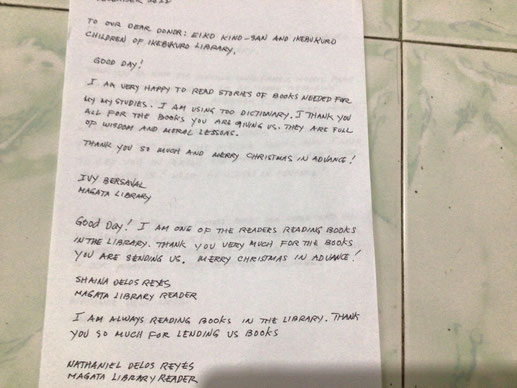 TO OUR DEAR DONOR: EIKO KINO-SAN AND IKEBUKURO
CHILDREN OF IKEBUKURO LIBRARY.
GOOD DAY!
I AM VERY HAPPY TO READ STORIES OF BOOKS NEEDED FOR
MY MY STUDIES. I AM USING TOO DICTIONARY. I THANK YOU
ALL FOR THE BOOKS YOU ARE GIVING US. THEY ARE FULL
OF WISDOM AND MORAL LESSONS.
THANK YOU SO MUCH AND MERRY CHRISTMAS IN ADVANCE!
IVY BERSAVAL
MAGATA LIBRARY
GOOD DAY! I AM ONE OF THE READERS READING BOOKS
IN THE LIBRARY. THANK YOU VERY MUCH FOR THE BOOKS
YOU ARE SENDING US. MERRY CHRISTMAS IN ADVANCE!
SHAINA DELOS REYES
MAGATA LIBRARY READER
I AM ALWAYS READING BOOKS IN THE LIBRARY. THANK
YOU SO MUCH FOR LENDING US BOOKS
NATHANIEL DELOS REYES
MAGATA LIBRARY READER